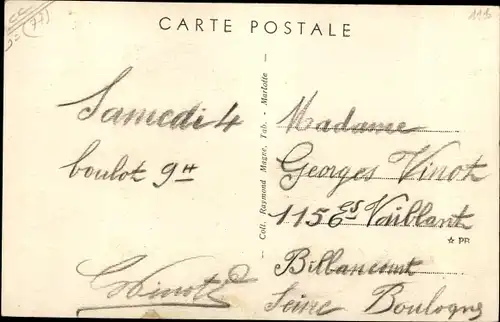 CARTE POSTALE
(77)
Samedi 4
boulot 9H
GVinot
Coll. Raymond Magne, Tab. - Marlotte
Madame
Georges Vinot
115 Bes Vaillant
☆ PR
Billancourt
Seine Boulogne